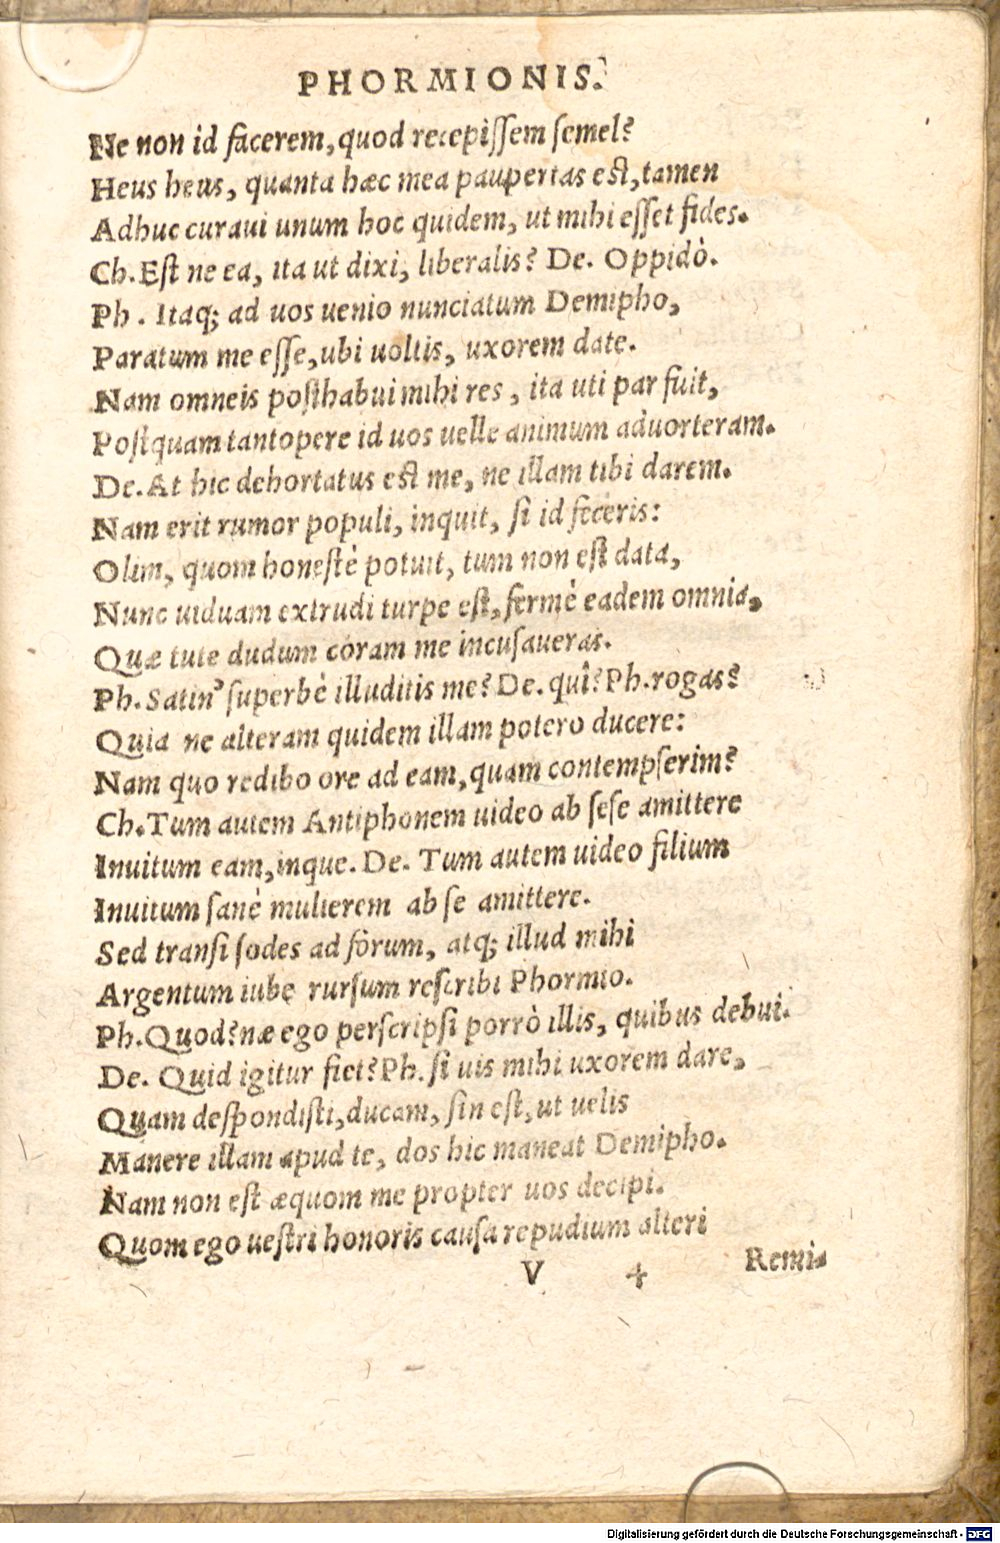 PHORMIONIS.
Ne non id facerem, quod recepiſſem ſemel?
Heus heus, quanta hæc mea paupertas eſt, tamen
Adhuc curaui unum hoc quidem, ut mihi eſſet fides.
Ch. Eſt ne ea, ita ut dixi, liberalis? De. Oppidò.
Ph. Itaq; ad uos uenio nunciatum Demipho,
Paratum me eſſe, ubi uoltis, uxorem date.
Nam omneis poſthabui mihi res, ita uti par fuit,
Poſtquam tantopere id uos uelle animum aduorteram.
De. At hic dehortatus eſt me, ne illam tibi darem.
Nam erit rumor populi, inquit, ſi id feceris:
Olim, quom honeſtè potuit, tum non eſt data,
Nunc uiduam extrudi turpe eſt, fermè eadem omnia,
Quæ tute dudum coram me incuſaueras.
Ph. Satin' ſuperbè illuditis me? De. quî? Ph. rogas?
Quia ne alteram quidem illam potero ducere:
Nam quo redibo ore ad eam, quam contempſerim?
Ch. Tum autem Antiphonem uideo ab ſeſe amittere
Inuitum eam, inque. De. Tum autem uideo filium
Inuitum ſanè mulierem ab ſe amittere.
Sed tranſi ſodes ad forum, atq; illud mihi
Argentum iube rurſum reſcribi Phormio.
Ph. Quod? næ ego perſcripſi porrò illis, quibus debui.
De. Quid igitur fiet? Ph. ſi uis mihi uxorem dare,
Quam deſpondiſti, ducam, ſin eſt, ut uelis
Manere illam apud te, dos hic maneat Demipho.
Nam non eſt æquom me propter uos decipi.
Quom ego ueſtri honoris cauſa repudium alteri
V 4 Remi-
Digitalisierung gefördert durch die Deutsche Forschungsgemeinschaft - DFG